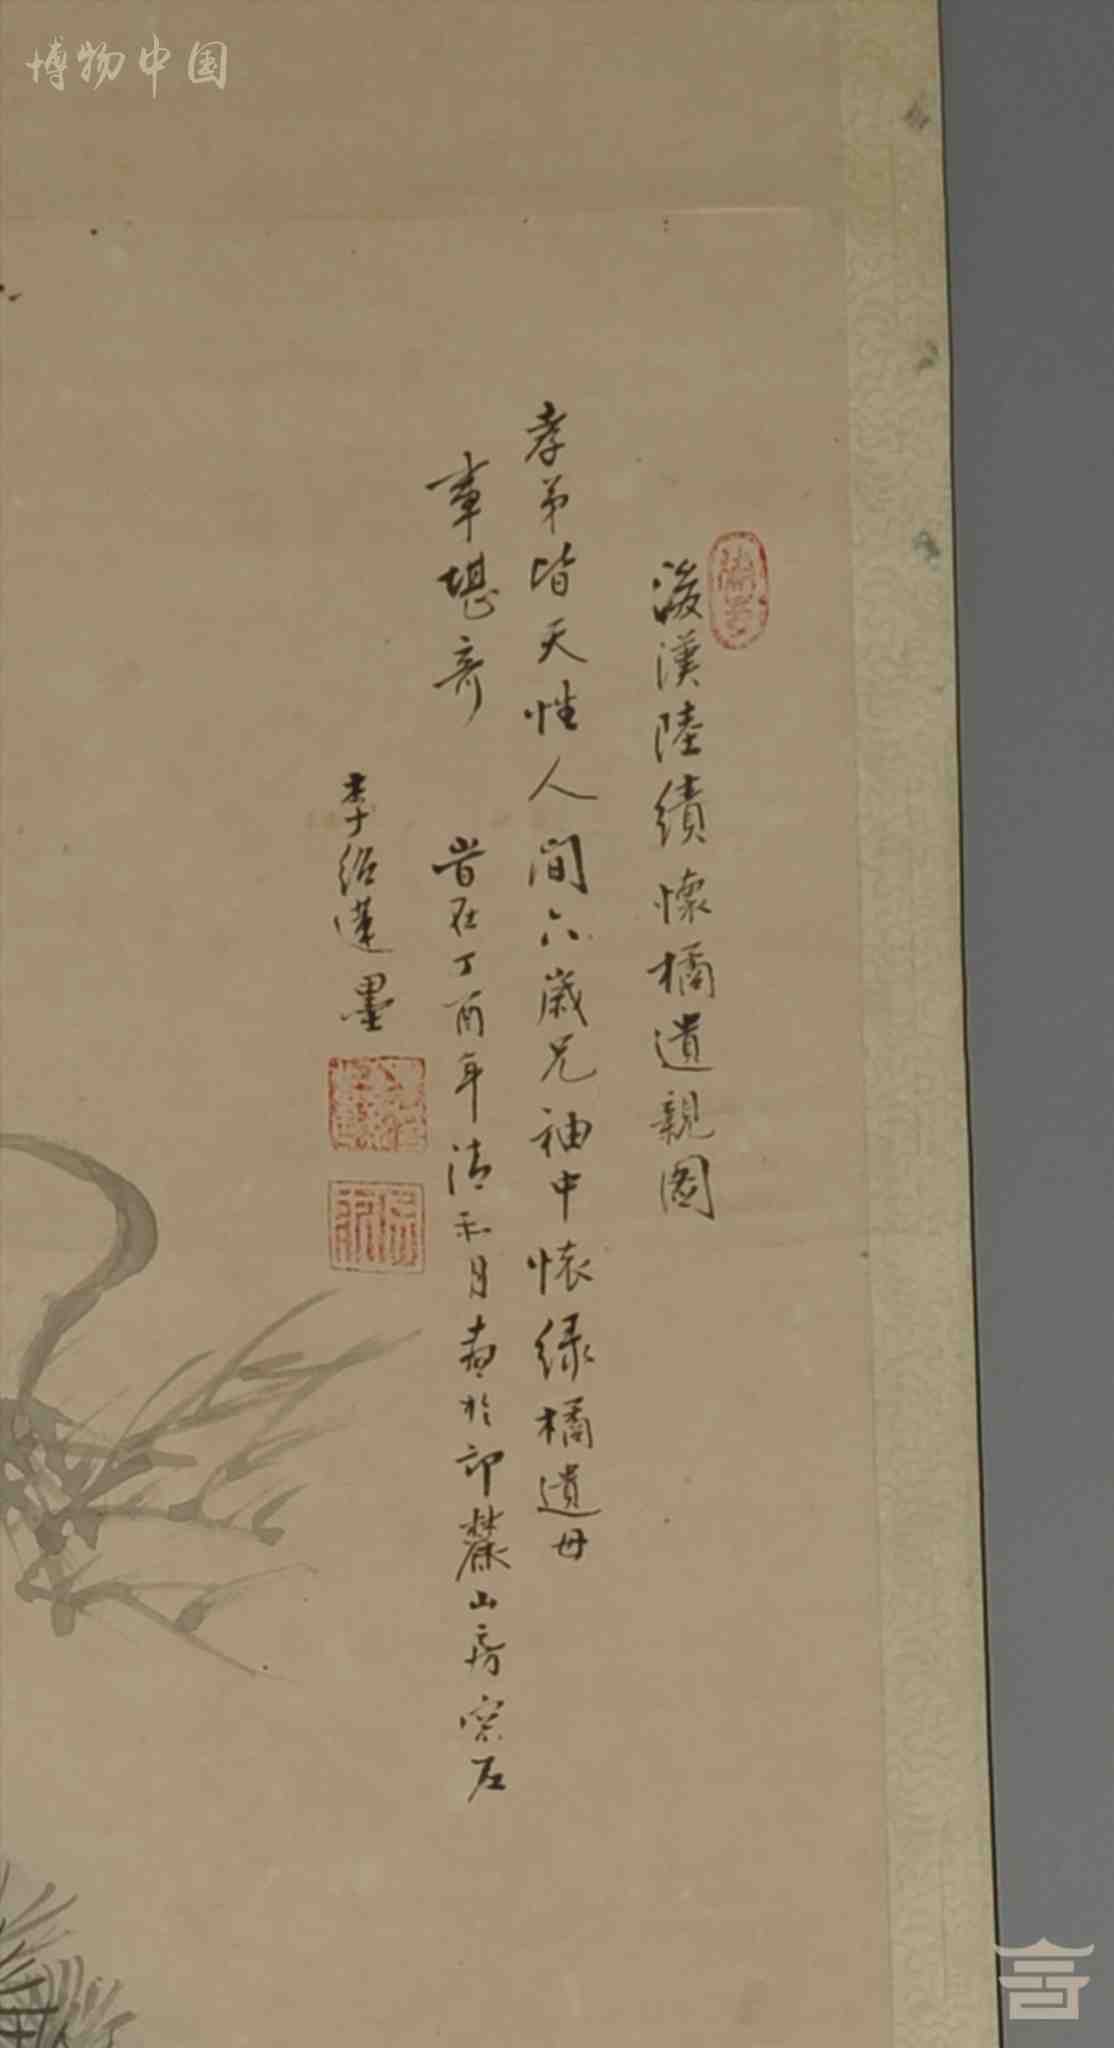 博物中国
後漢陸績懷橘遺親圖
孝弟皆天性人間六歲兄袖中懷绿橘遺母
事堪奇 峕在丁酉年清和月畫於印麓山房窓左
李紹蓮墨